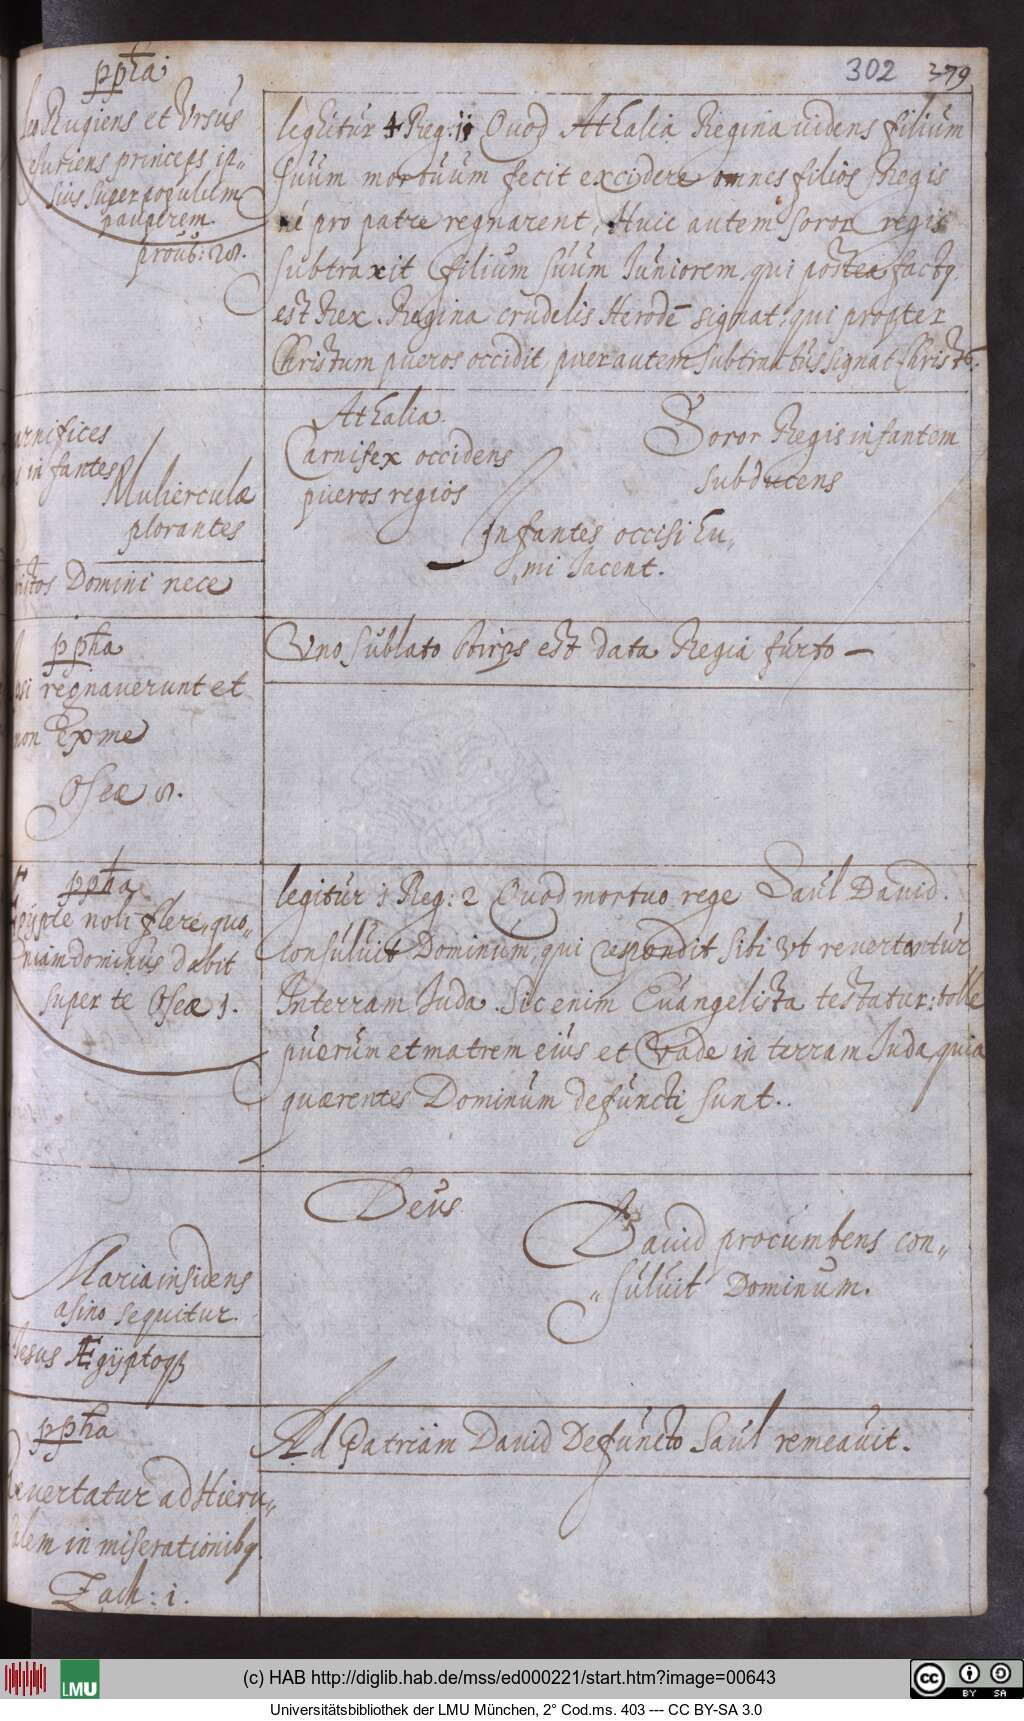 302 379
ppha
Leo Rugiens et Vrsus
esuriens princeps ip„
sius super populum
pauperem.
proub: 28.
legitur 4 Reg: 11 Quod Athalia Regina uidens filium
suum mortuum fecit excidere omnes filios Regis
ne pro patre regnarent, Huic autem soror regis
subtraxit filium suum Iuniorem, qui postea factq
est Rex. Regina crudelis Herodē signat, qui propter
Christum pueros occidit, puer autem subtractus signat Christū:
infantes
Mulierculæ
plorantes
Athalia.
Carnifex occidens
pueros regios
Soror Regis infantem
subducens
Infantes occisi hu„
„mi Iacent.
Domini nece
ppha
regnauerunt et
non Ex me
Oseæ 8.
Vno sublato stirps est data Regia furto —
ppha
noli flere, quo„
niam dominus dabit
super te Oseæ 1.
legitur 2 Reg: 2 Quod mortuo rege Saul Dauid
consuluit Dominum, qui respondit sibi vt revertantur
In terram Iuda. Sic enim Euangelista testatur: tolle
puerum et matrem eius et Vade in terram Iuda, quia
quærentes Dominum defuncti sunt..
Maria insidens
asino sequitur.
Deus
Dauid procumbens con„
„suluit Dominum.
Iesus Ægÿptoqȝ
ppha
Revertatur ad Hieru„
salem in miserationibq
Zach: 1.
Ad Patriam Dauid Defuncto Saul remeauit.
LMU
(c) HAB http://diglib.hab.de/mss/ed000221/start.htm?image=00643
cc BY SA
Universitätsbibliothek der LMU München, 2° Cod.ms. 403 --- CC BY-SA 3.0